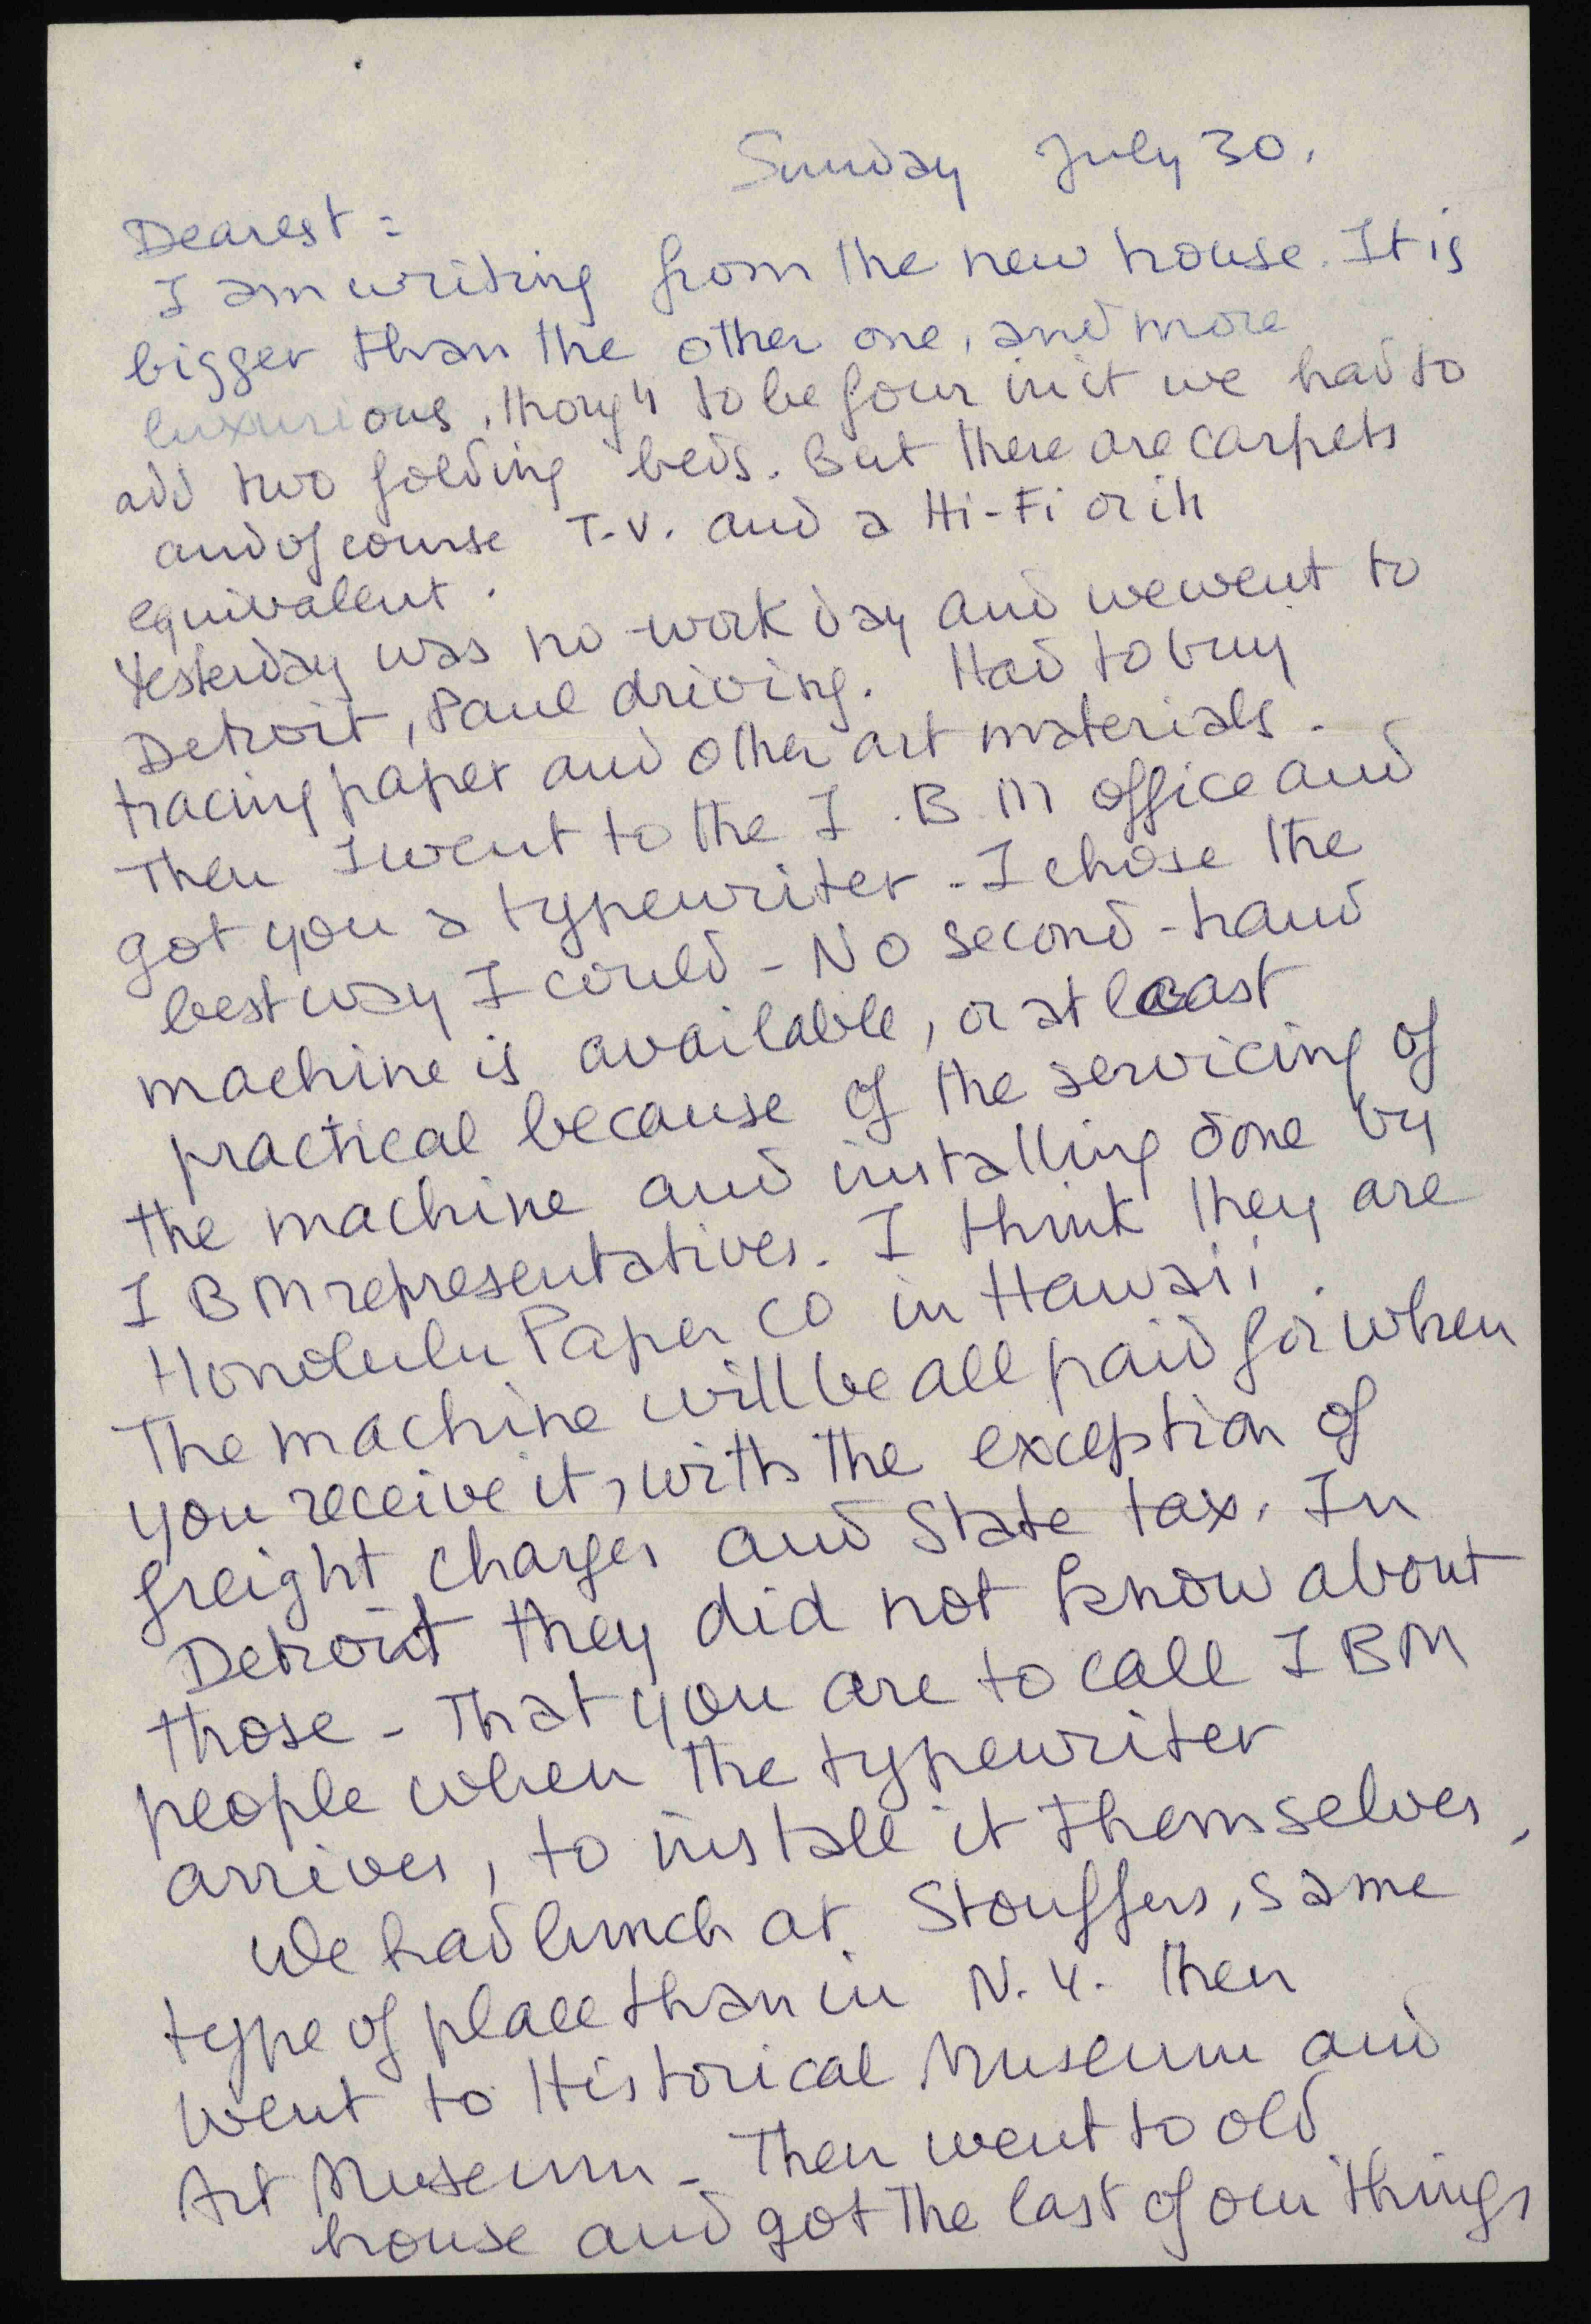 Sunday July 30.
Dearest:
I am writing from the new house. It is
bigger than the other one, and more
luxurious, though to be four in it we had to
add two folding beds. But there are carpets
and of course T.V. and a Hi-Fi or its
equivalent.
Yesterday was no work day and we went to
Detroit, Paul driving. Had to buy
tracing paper and other art materials.
Then I went to the I.B.M office and
got you a typewriter. I chose the
best way I could - No second-hand
machine is available, or at least
practical because of the servicing of
the machine and installing done by
IBM representatives. I think they are
Honolulu Paper Co in Hawaii.
The machine will be all paid for when
you receive it, with the exception of
freight charges and State tax. In
Detroit they did not know about
those - That you are to call IBM
people when the typewriter
arrives, to install it themselves,
We had lunch at Stouffers, same
type of place than in N.Y. Then
went to Historical Museum and
Art Museum - Then went to old
house and got the last of our things